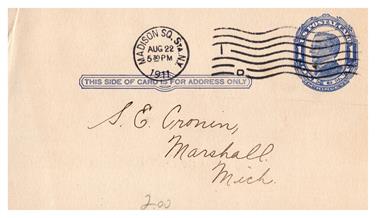 MADISON SQ. STA. N.Y.
AUG 22
5 30 PM
1911
U.S. POSTAL CARD
1 1
THIS SIDE OF CARD IS FOR ADDRESS ONLY
S. E. Cronin,
Marshall
Mich.
2.00